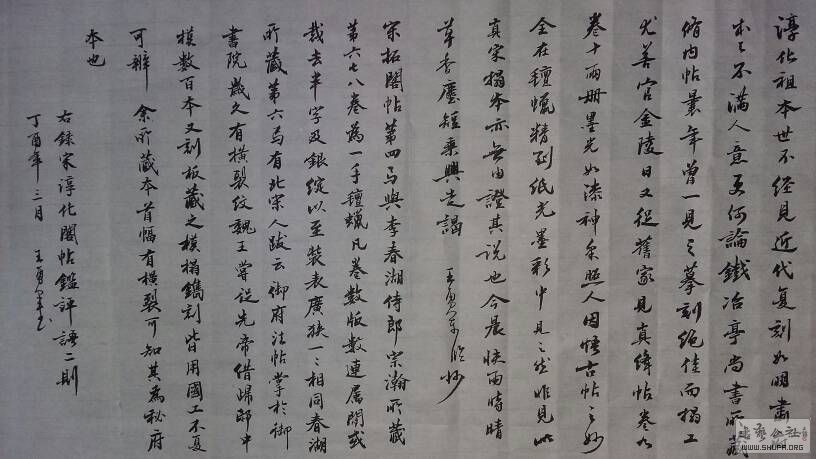 淳化祖本世不经見近代复刻如明肃
本已不满人意更何論鐵冶亭尚書所藏
脩内帖曩年曾一見之摹刻絶佳而搨工
尤善官金陵日又從舊家見真絳帖卷九
卷十兩册墨光如漆神采照人因悟古帖之妙
全在氊蠟精到紙光墨彩中見之然非見此
真宋搨本亦無由證其説也今晨快雨時晴
茗香麈短乘興走謁 王勇軍臨抄
宋拓閣帖第四与與李春湖侍郎宗瀚所藏
第六七八卷為一手氊蠟凡卷數版數連屬間或
裁去半字及銀錠以至裝表廣狹一一相同春湖
所藏第六与有北宋人跋云御府法帖掌於御
書院歲久有橫裂紋魏王嘗從先帝借歸邸中
模數百本又刻板藏之模搨鐫刻皆用國工不复
可辨 余所藏本首幅有橫裂可知其為秘府
本也
右錄宋淳化閣帖鑑評語二則
丁酉年三月 王勇軍书
WWW.SHUFA.ORG